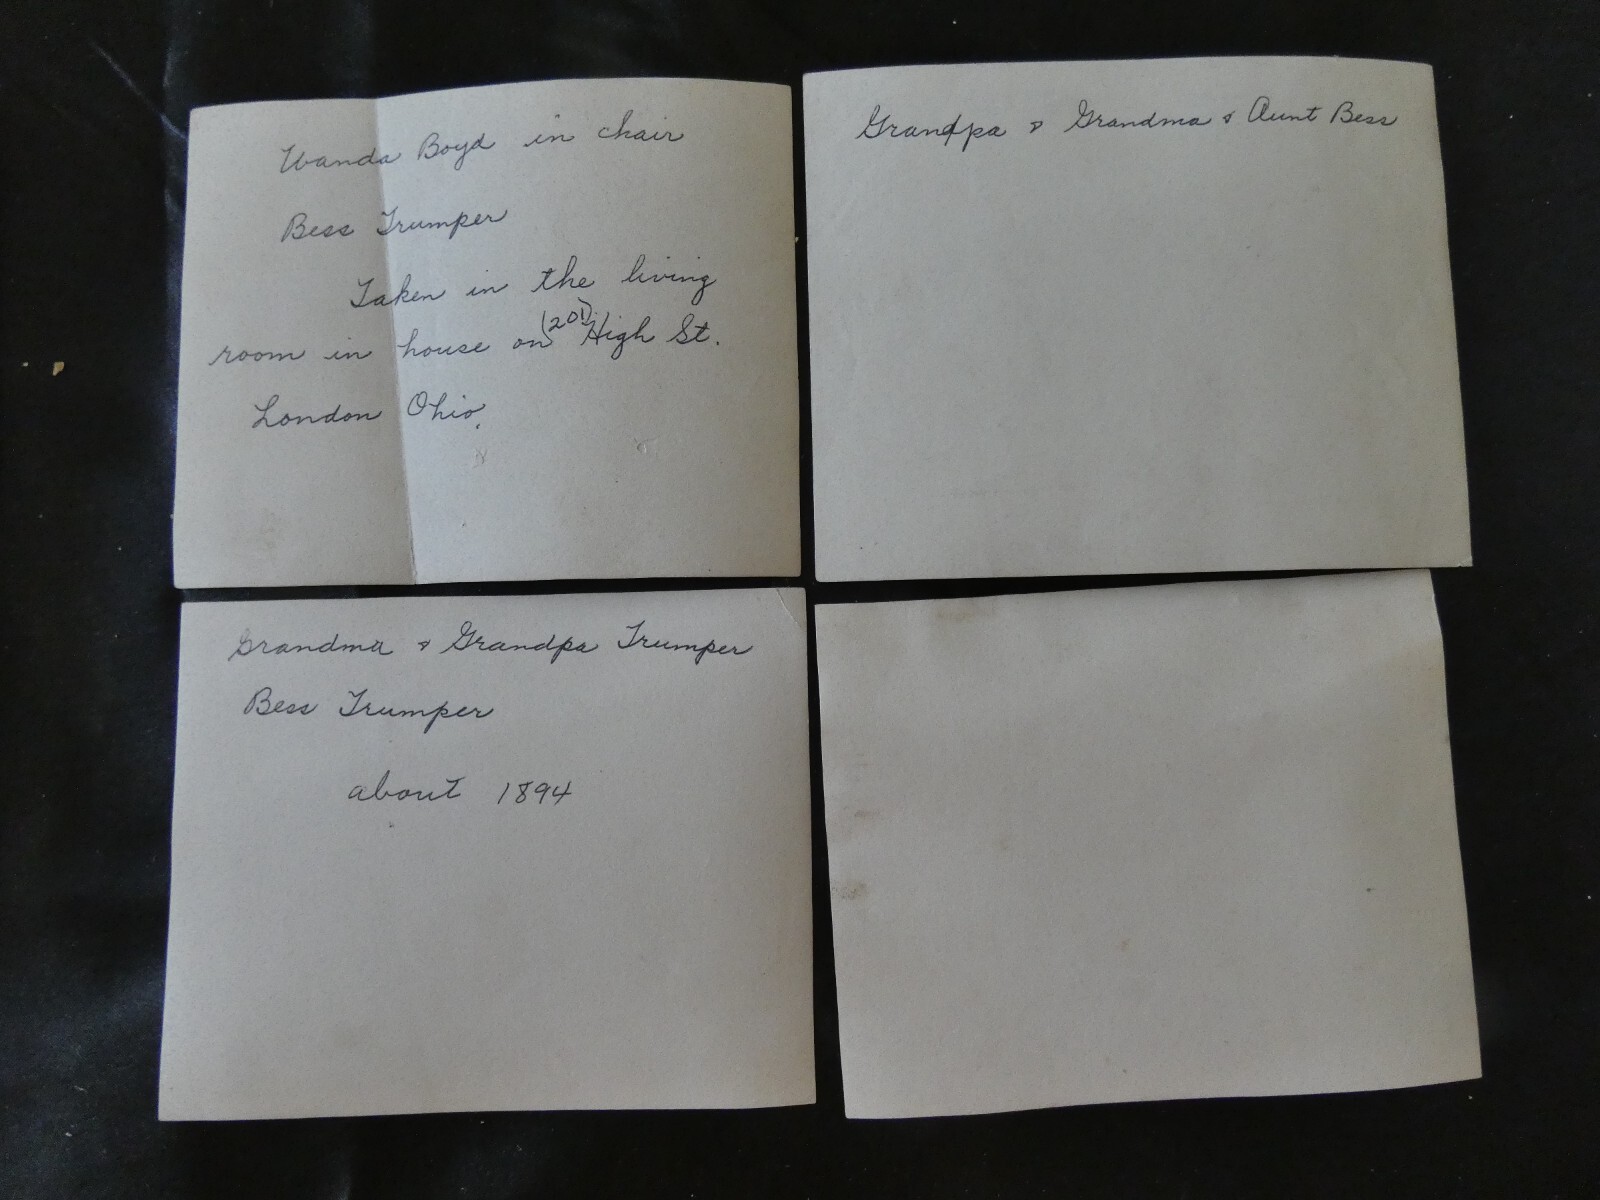 Wanda Boyd in chair
Bess Trumper
Taken in the living
room in house on (201) High St.
London Ohio.
Grandpa & Grandma & Aunt Bess
Grandma & Grandpa Trumper
Bess Trumper
about 1894